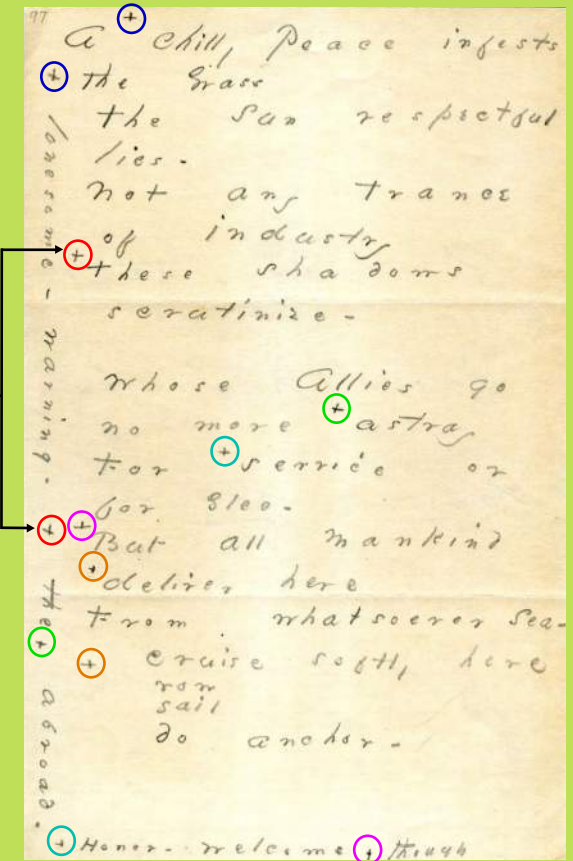 97
A + Chill, Peace infests
+ the Grass
the Sun respectful
lies -
Not any Trance
of industry
+ these shadows
scrutinize -
Whose Allies go
no more + astray
For + service or
for Glee -
+ But all mankind
+ deliver here
From whatsoever Sea -
+ cruise softly here
row
sail
do anchor -
+ lonesome - warning.
+ the abroad.
+ Honor - welcome + though